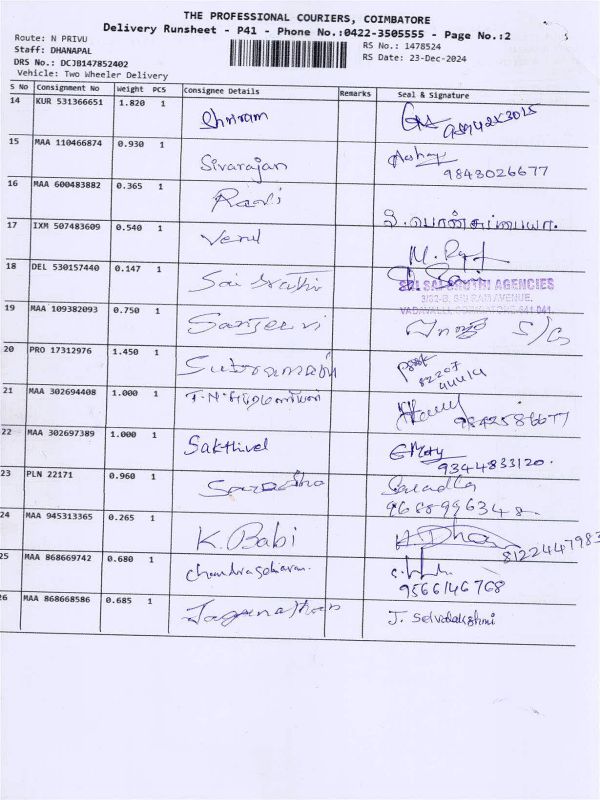 THE PROFESSIONAL COURIERS, COIMBATORE
Delivery Runsheet - P41 - Phone No.:0422-3505555 - Page No.:2
Route: N PRIVU
Staff: DHANAPAL
DRS No.: DCJB147852402
Vehicle: Two Wheeler Delivery
RS No.: 1478524
RS Date: 23-Dec-2024
S No Consignment No Weight PCS Consignee Details Remarks Seal & Signature
14 KUR 531366651 1.820 1 Shriram
15 MAA 110466874 0.930 1 Sivarajan Akshay 9843026677
16 MAA 600483882 0.365 1 Ravi
17 IXM 507483609 0.540 1 Venil M.
18 DEL 530157440 0.147 1 Sai Sruthi SRI SAI SRUTHI AGENCIES
3/32-B, SRI RAM AVENUE,
VADAVALLI, COIMBATORE-641 041.
19 MAA 109382093 0.750 1 Sanjeevi S/G
20 PRO 17312976 1.450 1 Subramani 82207 44414
21 MAA 302694408 1.000 1 T.N. 9842586677
22 MAA 302697389 1.000 1 Sakthivel 9344833120.
23 PLN 22171 0.960 1 Saradha Saradha
9688996348
24 MAA 945313365 0.265 1 K. Babi 8122447983
25 MAA 868669742 0.680 1 Chandrasekaran. 9566146768
26 MAA 868668586 0.685 1 Jaganathan J. Selvalakshmi